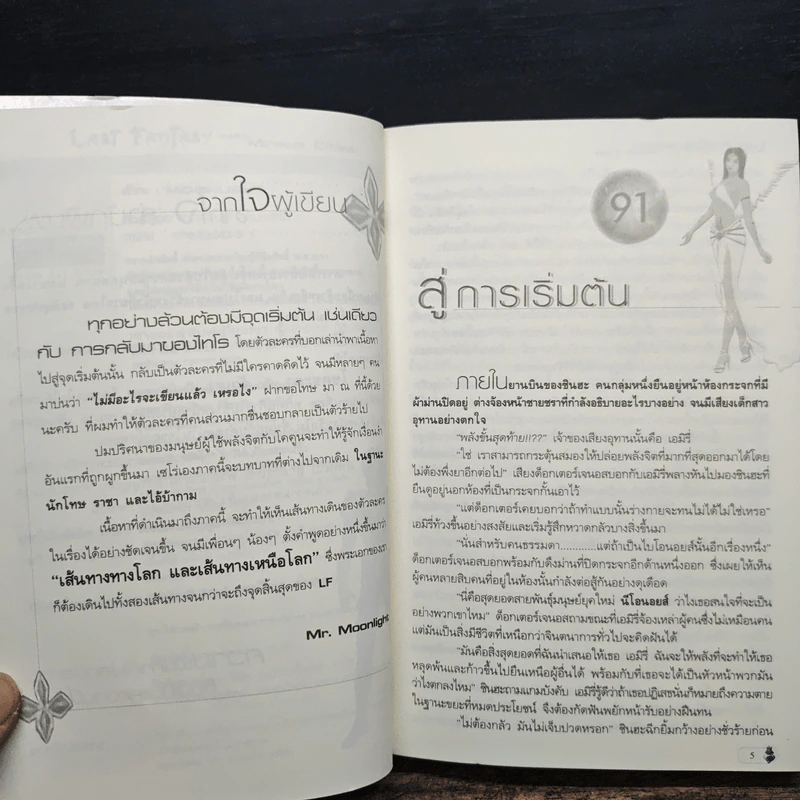 จากใจผู้เขียน
ทุกอย่างล้วนต้องมีจุดเริ่มต้น เช่นเดียว
กับ การกลับมาของไทโร โดยตัวละครที่บอกเล่านำพาเนื้อหา
ไปสู่จุดเริ่มต้นนั้น กลับเป็นตัวละครที่ไม่มีใครคาดคิดไว้ จนมีหลายๆ คน
มาบ่นว่า “ไม่มีอะไรจะเขียนแล้ว เหรอไง” ฝากขอโทษ มา ณ ที่นี้ด้วย
นะครับ ที่ผมทำให้ตัวละครที่คนส่วนมากชื่นชอบกลายเป็นตัวร้ายไป
ปมปริศนาของมนุษย์ผู้ใช้พลังจิตกับโคคูนจะทำให้รู้จักเงื่อนงำ
อันแรกที่ถูกผูกขึ้นมา เซโร่เองภาคนี้จะบทบาทที่ต่างไปจากเดิม ในฐานะ
นักโทษ ราชา และไอ้บ้ากาม
เนื้อหาที่ดำเนินมาถึงภาคนี้ จะทำให้เห็นเส้นทางเดินของตัวละคร
ในเรื่องได้อย่างชัดเจนขึ้น จนมีเพื่อนๆ น้องๆ ตั้งคำพูดอย่างหนึ่งขึ้นมาว่า
“เส้นทางทางโลก และเส้นทางเหนือโลก” ซึ่งพระเอกของเรา
ก็ต้องเดินไปทั้งสองเส้นทางจนกว่าจะถึงจุดสิ้นสุดของ LF
Mr. Moonlight
91
สู่ การเริ่มต้น
ภายในยานบินของชินฮะ คนกลุ่มหนึ่งยืนอยู่หน้าห้องกระจกที่มี
ผ้าม่านปิดอยู่ ต่างจ้องหน้าชายชราที่กำลังอธิบายอะไรบางอย่าง จนมีเสียงเด็กสาว
อุทานอย่างตกใจ
“พลังขั้นสุดท้าย!!??” เจ้าของเสียงอุทานนั้นคือ เอมิรี่
“ใช่ เราสามารถกระตุ้นสมองให้ปล่อยพลังจิตที่มากที่สุดออกมาได้โดย
ไม่ต้องพึ่งยาอีกต่อไป” เสียงด็อกเตอร์เจนอสบอกกับเอมิรี่พลางหันไปมองชินฮะที่
ยืนดูอยู่นอกห้องที่เป็นกระจกกั้นเอาไว้
“แต่ด็อกเตอร์เคยบอกว่าถ้าทำแบบนั้นร่างกายจะทนไม่ได้ไม่ใช่เหรอ”
เอมิรี่ท้วงขึ้นอย่างสงสัยและเริ่มรู้สึกหวาดกลัวบางสิ่งขึ้นมา
“นั่นสำหรับคนธรรมดา............แต่ถ้าเป็นไบโอนอยส์นั้นอีกเรื่องหนึ่ง”
ด็อกเตอร์เจนอสตอบกลับพร้อมกับดึงม่านที่ปิดกระจกอีกด้านหนึ่งออก ซึ่งเผยให้เห็น
ผู้คนหลายสิบคนที่อยู่ในห้องนั้นกำลังต่อสู้กันอย่างดุเดือด
“นี่คือสุดยอดสายพันธุ์มนุษย์ยุคใหม่ นีโอนอยส์ ว่าไงเธอสนใจที่จะเป็น
อย่างพวกเขาไหม” ด็อกเตอร์เจนอสถามขณะที่เอมิรี่จ้องเหล่าผู้คนซึ่งไม่เหมือนคน
แต่มันเป็นสิ่งมีชีวิตที่เหนือกว่าจินตนาการทั่วไปจะคิดฝันได้
“มันคือสิ่งสุดยอดที่ฉันนำเสนอให้เธอ เอมิรี่ ฉันจะให้พลังที่จะทำให้เธอ
หลุดพ้นและก้าวขึ้นไปยืนเหนือผู้อื่นได้ พร้อมกับที่เธอจะได้เป็นหัวหน้าพวกมัน
ว่าไงตกลงไหม” ชินฮะถามแกมบังคับ เอมิรี่รู้ดีว่าถ้าเธอปฏิเสธนั่นก็หมายถึงความตาย
ในฐานะขยะที่หมดประโยชน์ จึงต้องกัดฟันพยักหน้ารับอย่างฝืนทน
“ไม่ต้องกลัว มันไม่เจ็บปวดหรอก” ชินฮะฉีกยิ้มกว้างอย่างชั่วร้ายก่อน
5